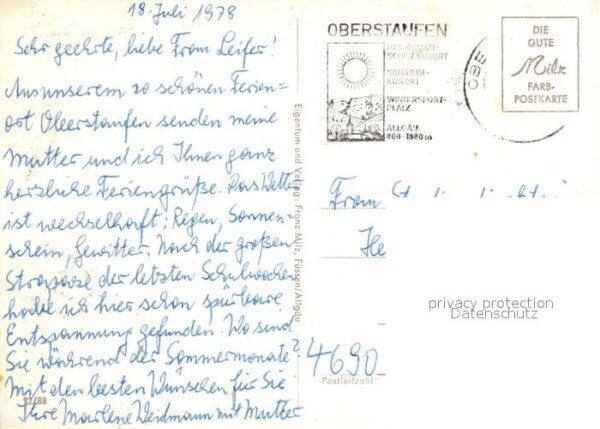 18. Juli 1978
Sehr geehrte, liebe Frau Leifer!
Aus unserem so schönen Ferien=
ort Oberstaufen senden meine
Mutter und ich Ihnen ganz
herzliche Feriengrüße. Das Wetter
ist wechselhaft: Regen, Sonnen-
schein, Gewitter. Nach der großen
Strapaze der letzten Schulwochen
habe ich hier schon spürbare
Entspannung gefunden. Wo sind
Sie während der Sommermonate?
Mit den besten Wünschen für Sie
Ihre Marlene Weidmann mit Mutter
92/88
Eigentum und Verlag: Franz Milz, Füssen/Allgäu
OBERSTAUFEN
HEILKLIMATI-
SCHER KURORT
SCHROTH-
KURORT
WINTERSPORT-
PLATZ
ALLGÄU
OBE
DIE
GUTE
Milz
FARB-
POSTKARTE
Frau
He
privacy protection
Datenschutz
4690
Postleitzahl